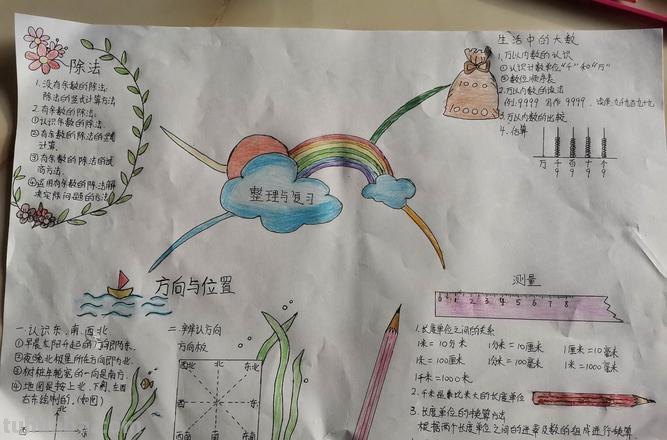 除法
1.没有余数的除法.
除法的竖式计算方法
2.有余数的除法.
①认识余数的除法.
②有余数的除法的竖式
计算.
③有余数的除法的试
商方法.
④运用有余数的除法解
决实际问题的方法
整理与复习
生活中的大数
1.万以内数的认识
①认识计数单位“千”和“万”
②数位顺序表
2.万以内数的读法
例:9999 写作 9999
3.万以内数的比较
4.估算
万 千 百 十 个
9 9 9 9
10
1000
方向与位置
一.认识东.南.西.北.
①早晨太阳升起的方向即为东.
②夜晚北极星所在方向即为北.
③树桩年轮宽的一向是南方.
④地图是按上北.下南.左西
右东绘制的.(如图)
北
二.辨认方向
方向板
西北 北 东北
西 东
西南 南 东南
测量
0 1 2 3 4 5 6 7 8
1.长度单位之间的关系
1米=10分米 1分米=10厘米 1厘米=10毫米
1米=100厘米 1分米=100毫米 1米=1000毫米
1千米=1000米
2.千米是最比米大的长度单位
3.长度单位的换算方法
根据两个长度单位之间的进率及数的组成进行换算.